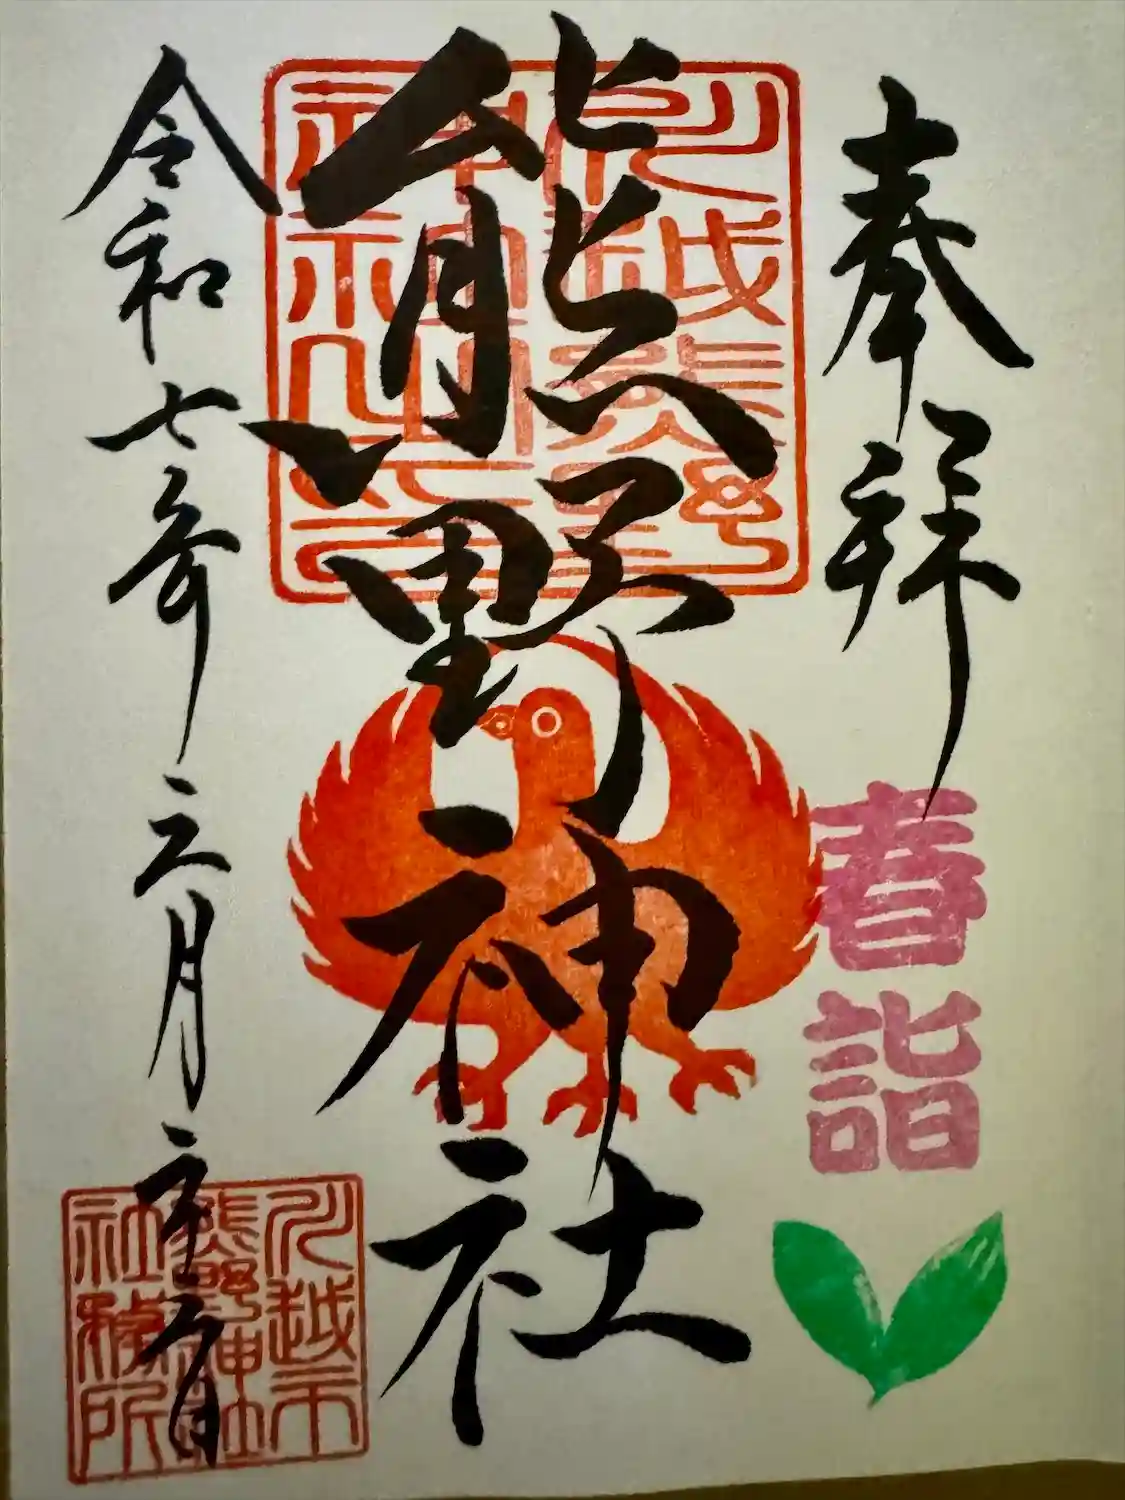 奉拝
春詣
川越熊野
神社之印
熊野神社
令和七年三月二十二日
川越市
熊野神社
社務所